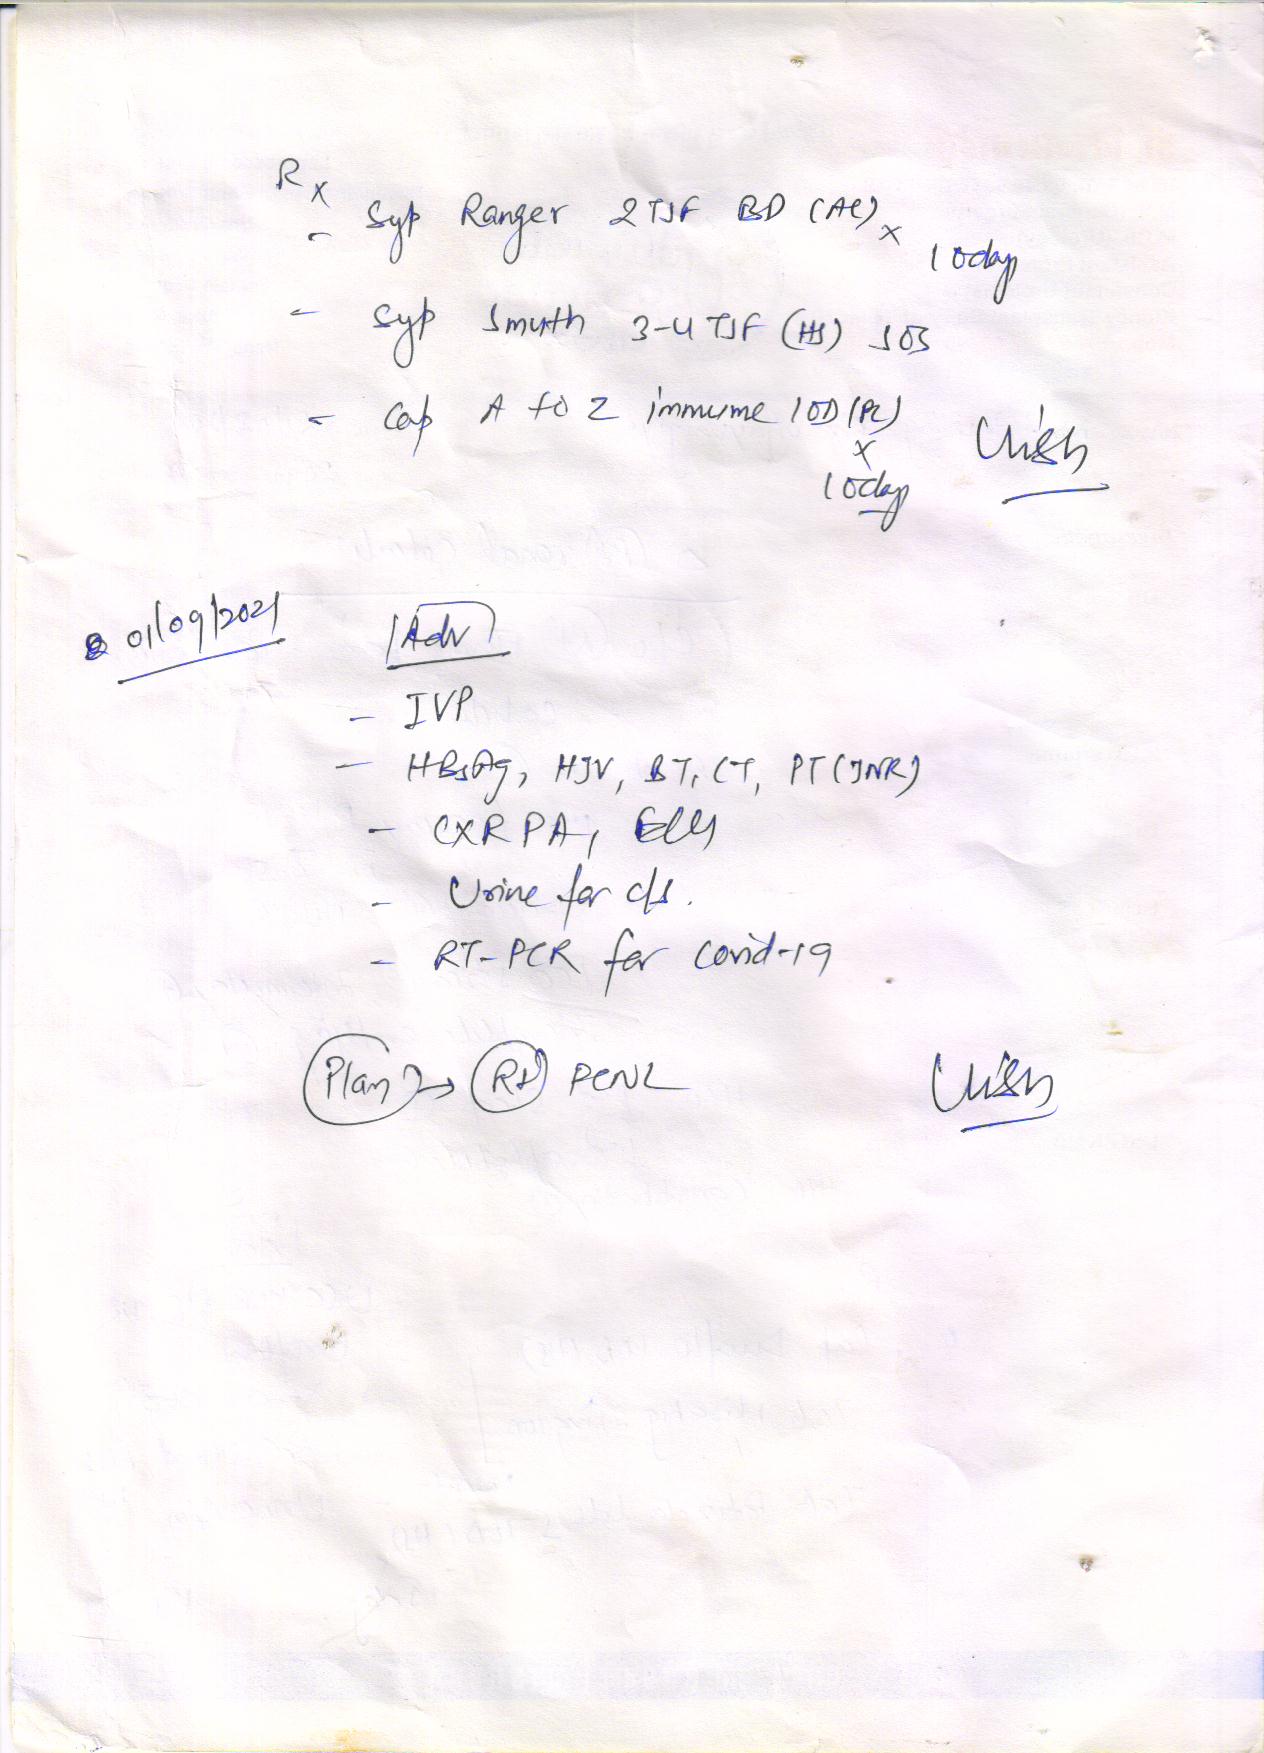 Rx
- Syp Ranger 2 TSF BD (AC) x 10 days
- Syp Smuth 3-4 TSF (HS) SOS
- Cap A to Z immune 1 OD (PC)
x
10 days
01/09/2021 Adv
- IVP
- HBsAg, HIV, BT, CT, PT (INR)
- CXR PA, ECG
- Urine for c/s.
- RT-PCR for Covid-19
Plan → Rt PCNL